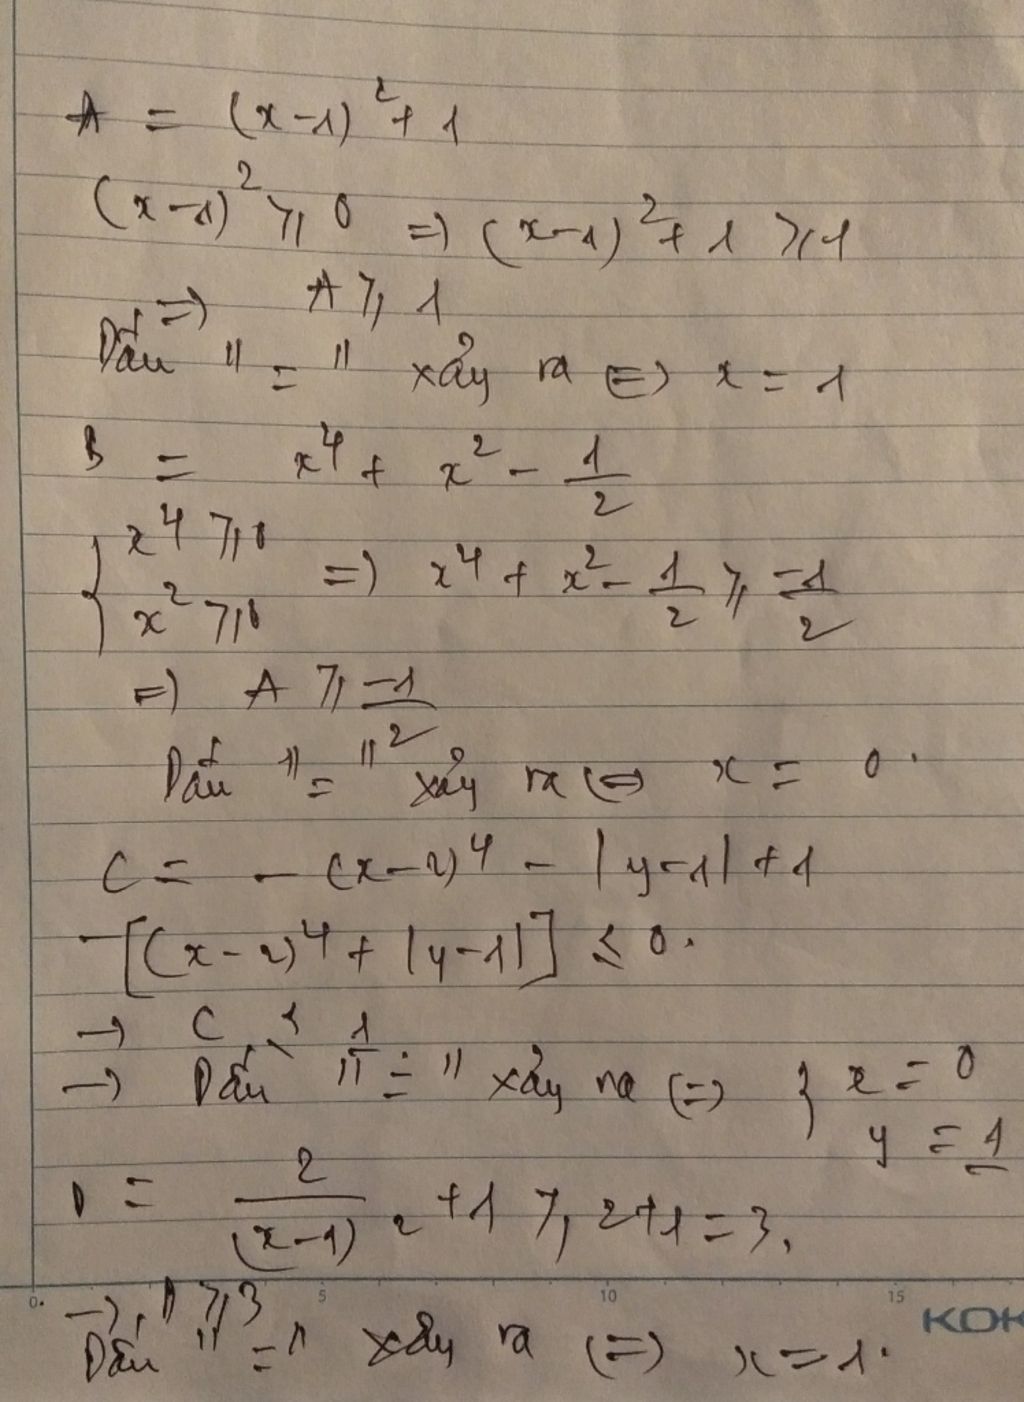 A = (x-1)² + 1
(x-1)² ⩾ 0 => (x-1)² + 1 ⩾ 1
=> A ⩾ 1
Dấu "=" xảy ra <=> x = 1
B = x⁴ + x² - 1/2
{ x⁴ ⩾ 0
x² ⩾ 0 => x⁴ + x² - 1/2 ⩾ -1/2
=> A ⩾ -1/2
Dấu "=" xảy ra <=> x = 0.
C = - (x-2)⁴ - |y-1| + 1
-[(x-2)⁴ + |y-1|] ⩽ 0.
-> C ⩽ 1
-> Dấu "=" xảy ra <=> { x = 0
y = 1
D = 2/(x-1)² + 1 ⩾ 2+1 = 3.
0. 5 10 15 KOK
-> D ⩾ 3
Dấu "=" xảy ra <=> x = 1.